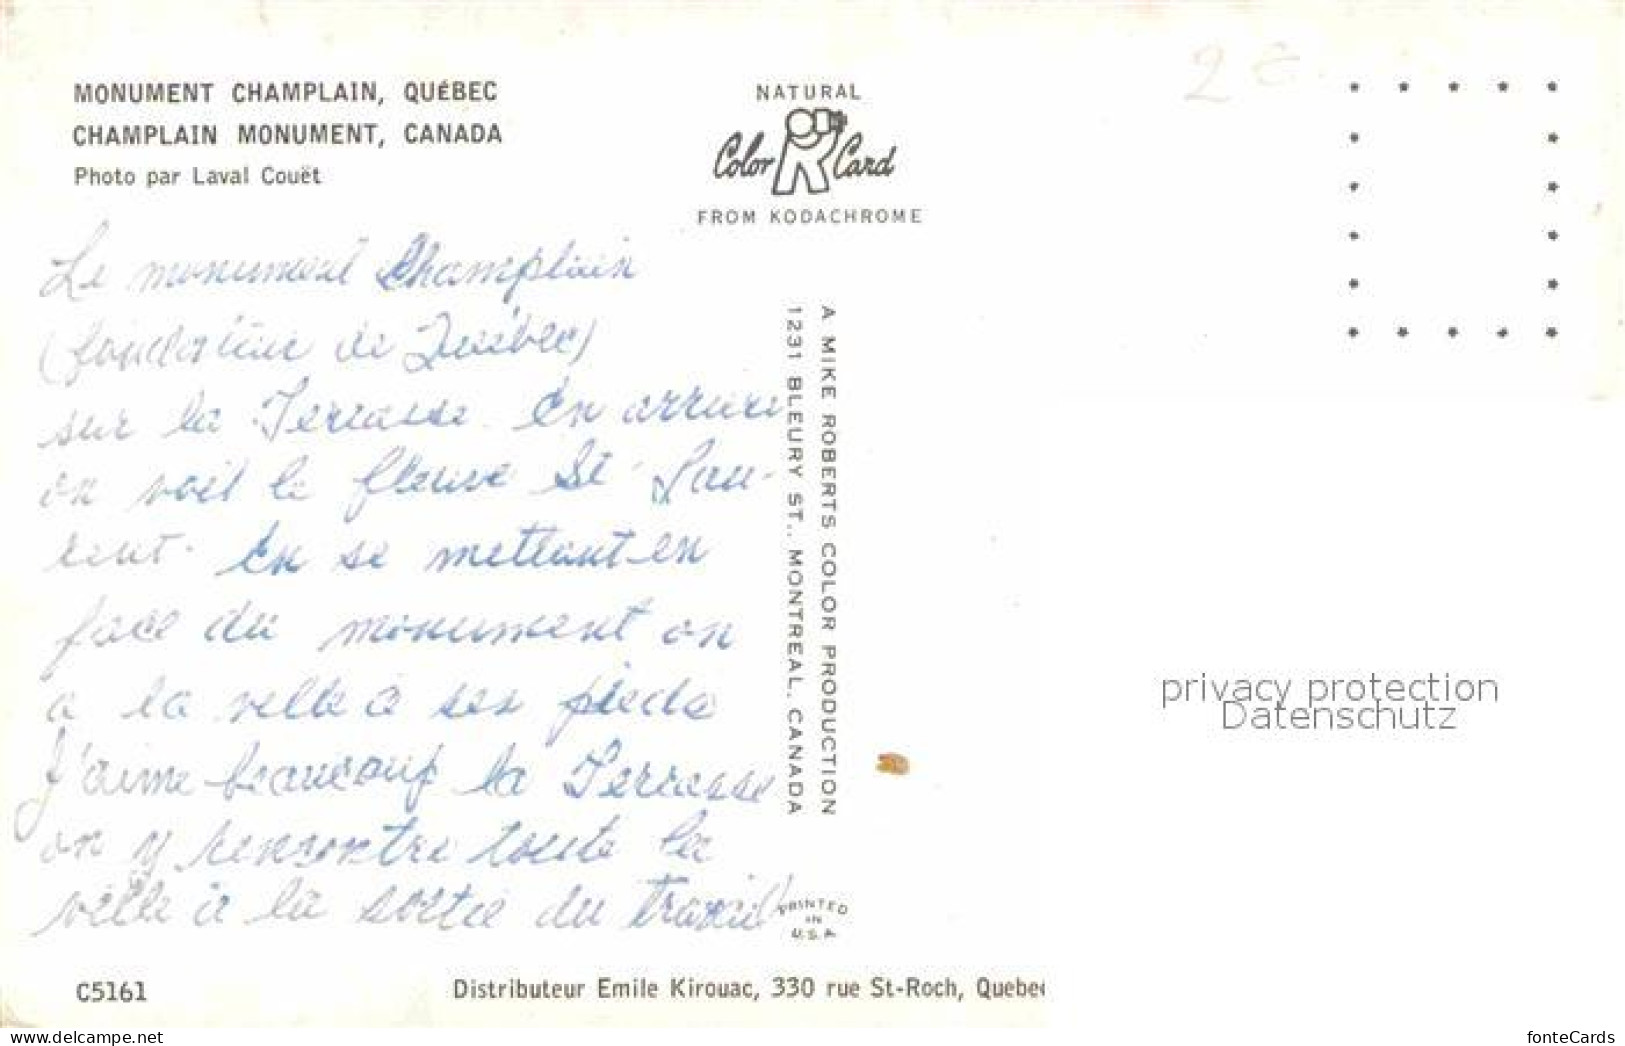 MONUMENT CHAMPLAIN, QUÉBEC
CHAMPLAIN MONUMENT, CANADA
Photo par Laval Couët
Le monument Champlain
(fondateur de Québec)
sur la Terrasse. En arrière
on voit le fleuve St-Lau-
rent. En se mettant en
face du monument on
a la ville à ses pieds
J'aime beaucoup la Terrasse
on y rencontre toute la
ville à la sortie du travail
NATURAL
Color Card
FROM KODACHROME
A MIKE ROBERTS COLOR PRODUCTION
1231 BLEURY ST., MONTREAL, CANADA
PRINTED
IN
U.S.A
2
privacy protection
Datenschutz
C5161
Distributeur Emile Kirouac, 330 rue St-Roch, Quebec
delcampe.net
fonteCards